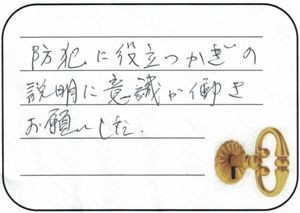 防犯に役立つかぎの
説明に意識が働き
お願いした.